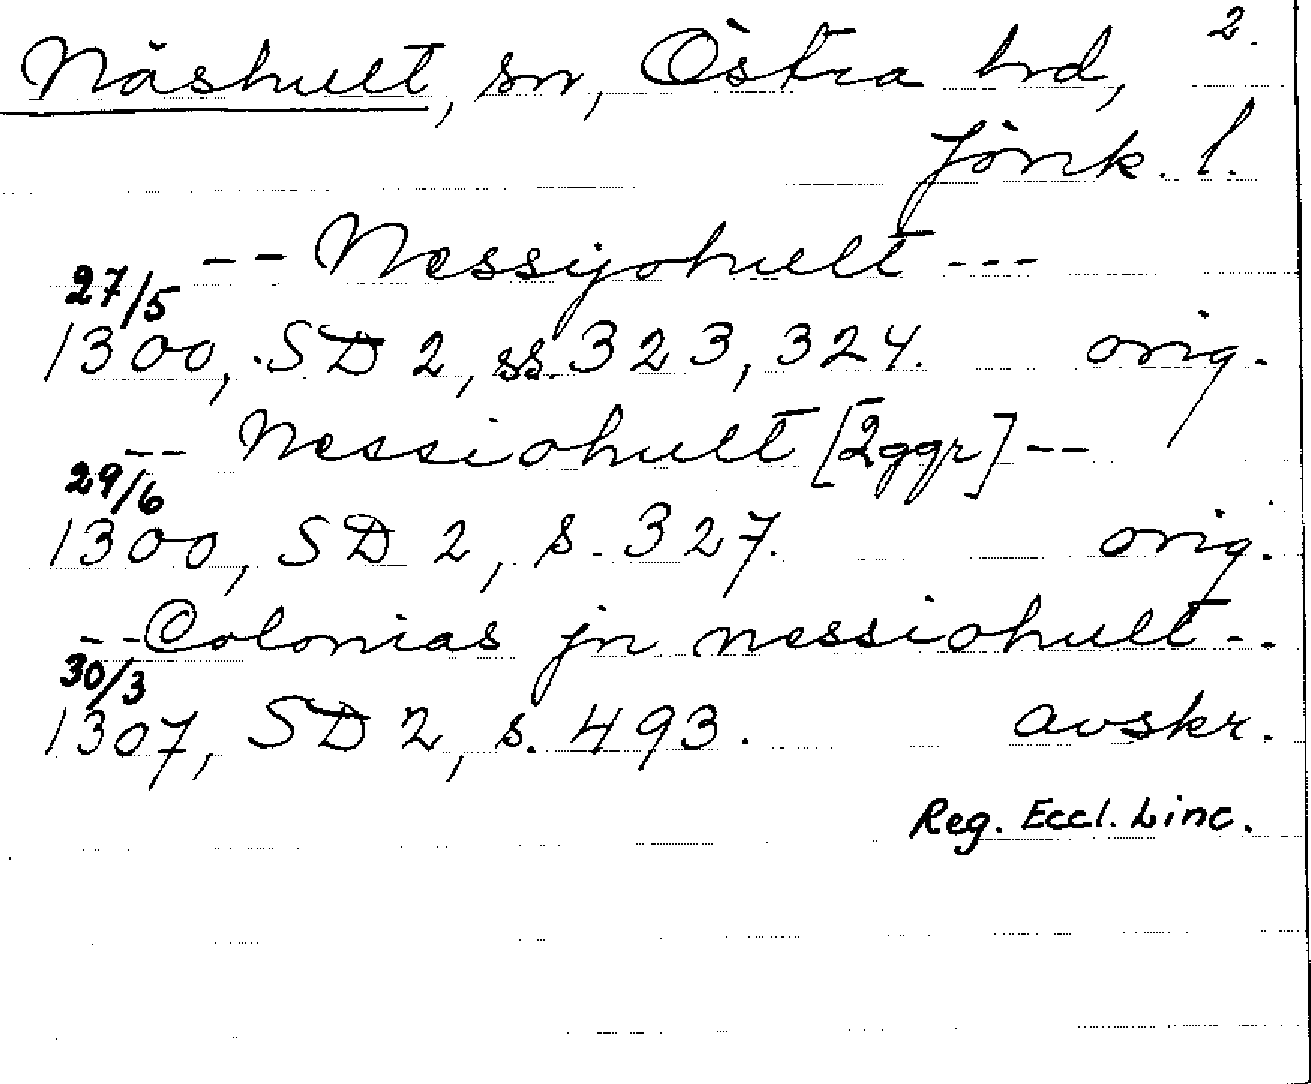 2.
Näshult, sn, Östra hd,
Jönk. l.
-- Nessyohult ---
27/5
1300, SD 2, ss. 323, 324. orig.
-- Nessiohult [2ggr] --
29/6
1300, SD 2, s. 327. orig.
-- Colonias jn nessiohult --
30/3
1307, SD 2, s. 493. avskr.
Reg. Eccl. Linc.